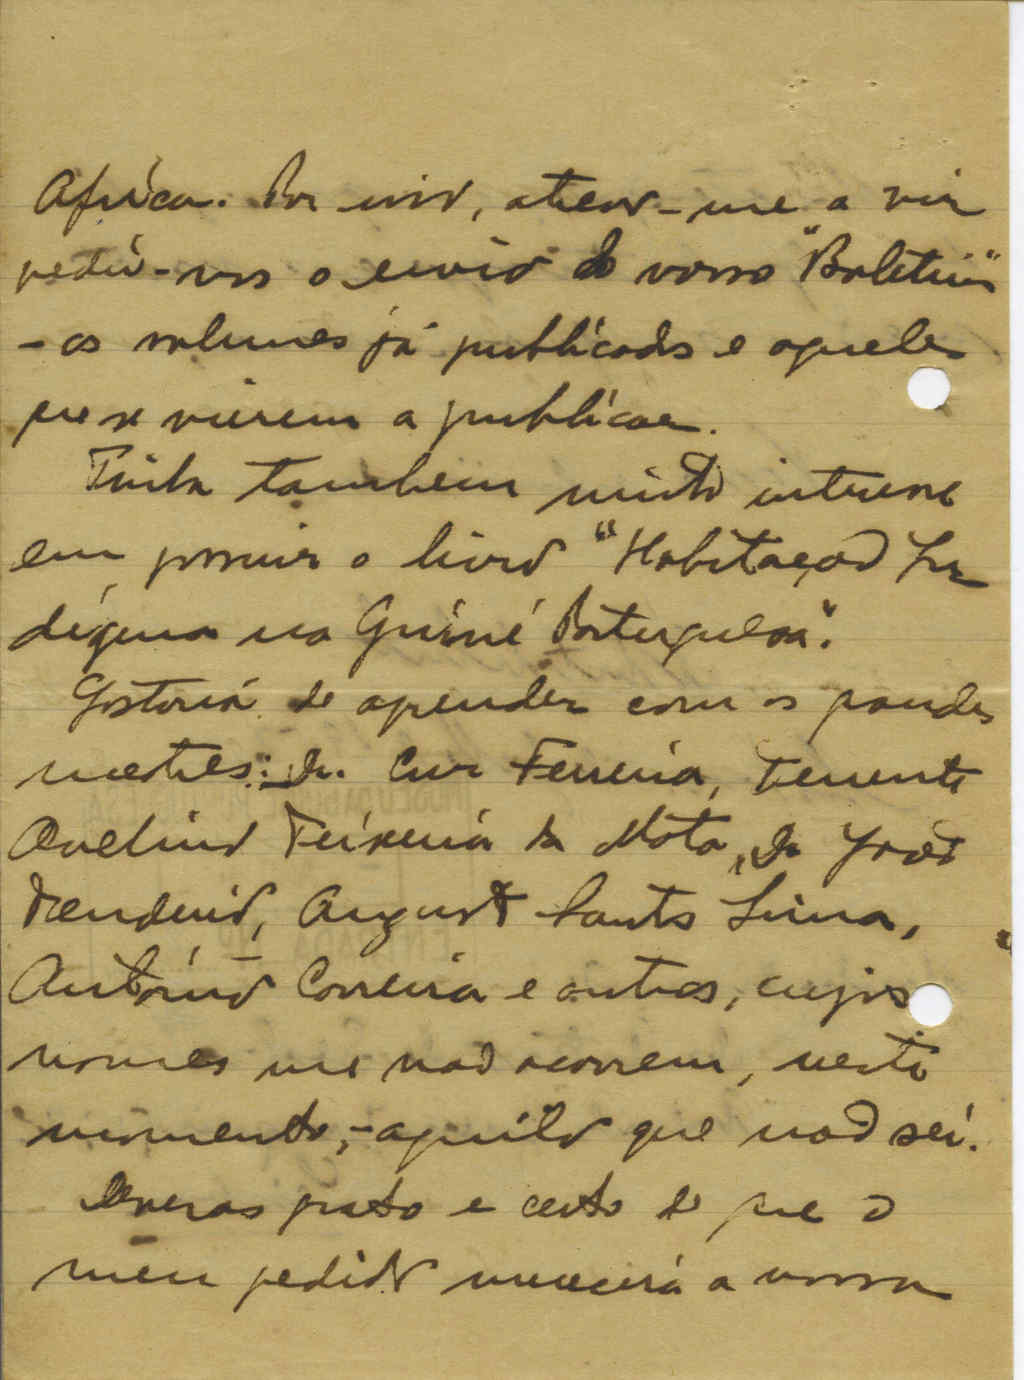 Africa. Por isso, atrevo-me a vir
pedir-vos o envio do vosso "Boletim"
- os volumes já publicados e aqueles
que se vierem a publicar.
Tinha tambem muito interesse
em possuir o livro "Habitação In
dígena na Guiné Portuguesa".
Gostaria de aprender com os grandes
mestres: Dr. Cruz Ferreira, Tenente
Avelino Teixeira da Mota, Dr.
Tendeiro, Augusto Santos Lima,
António Carreira e outros, cujos
nomes me não ocorrem, neste
momento, - aquilo que não sei.
Deveras grato e certo de que o
meu pedido merecerá a vossa